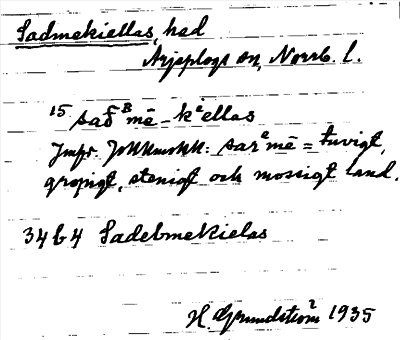 Sadmekiellas, hed
Arjeplogs sn, Norrb. l.
15 sað ᴮmē-kᵉellas
Jmfr. Jokkmokk: sarᵉmē = tuvigt,
gropigt, stenigt och mossigt land.
34 b 4 Sadebmekielas
H. Grundström 1935